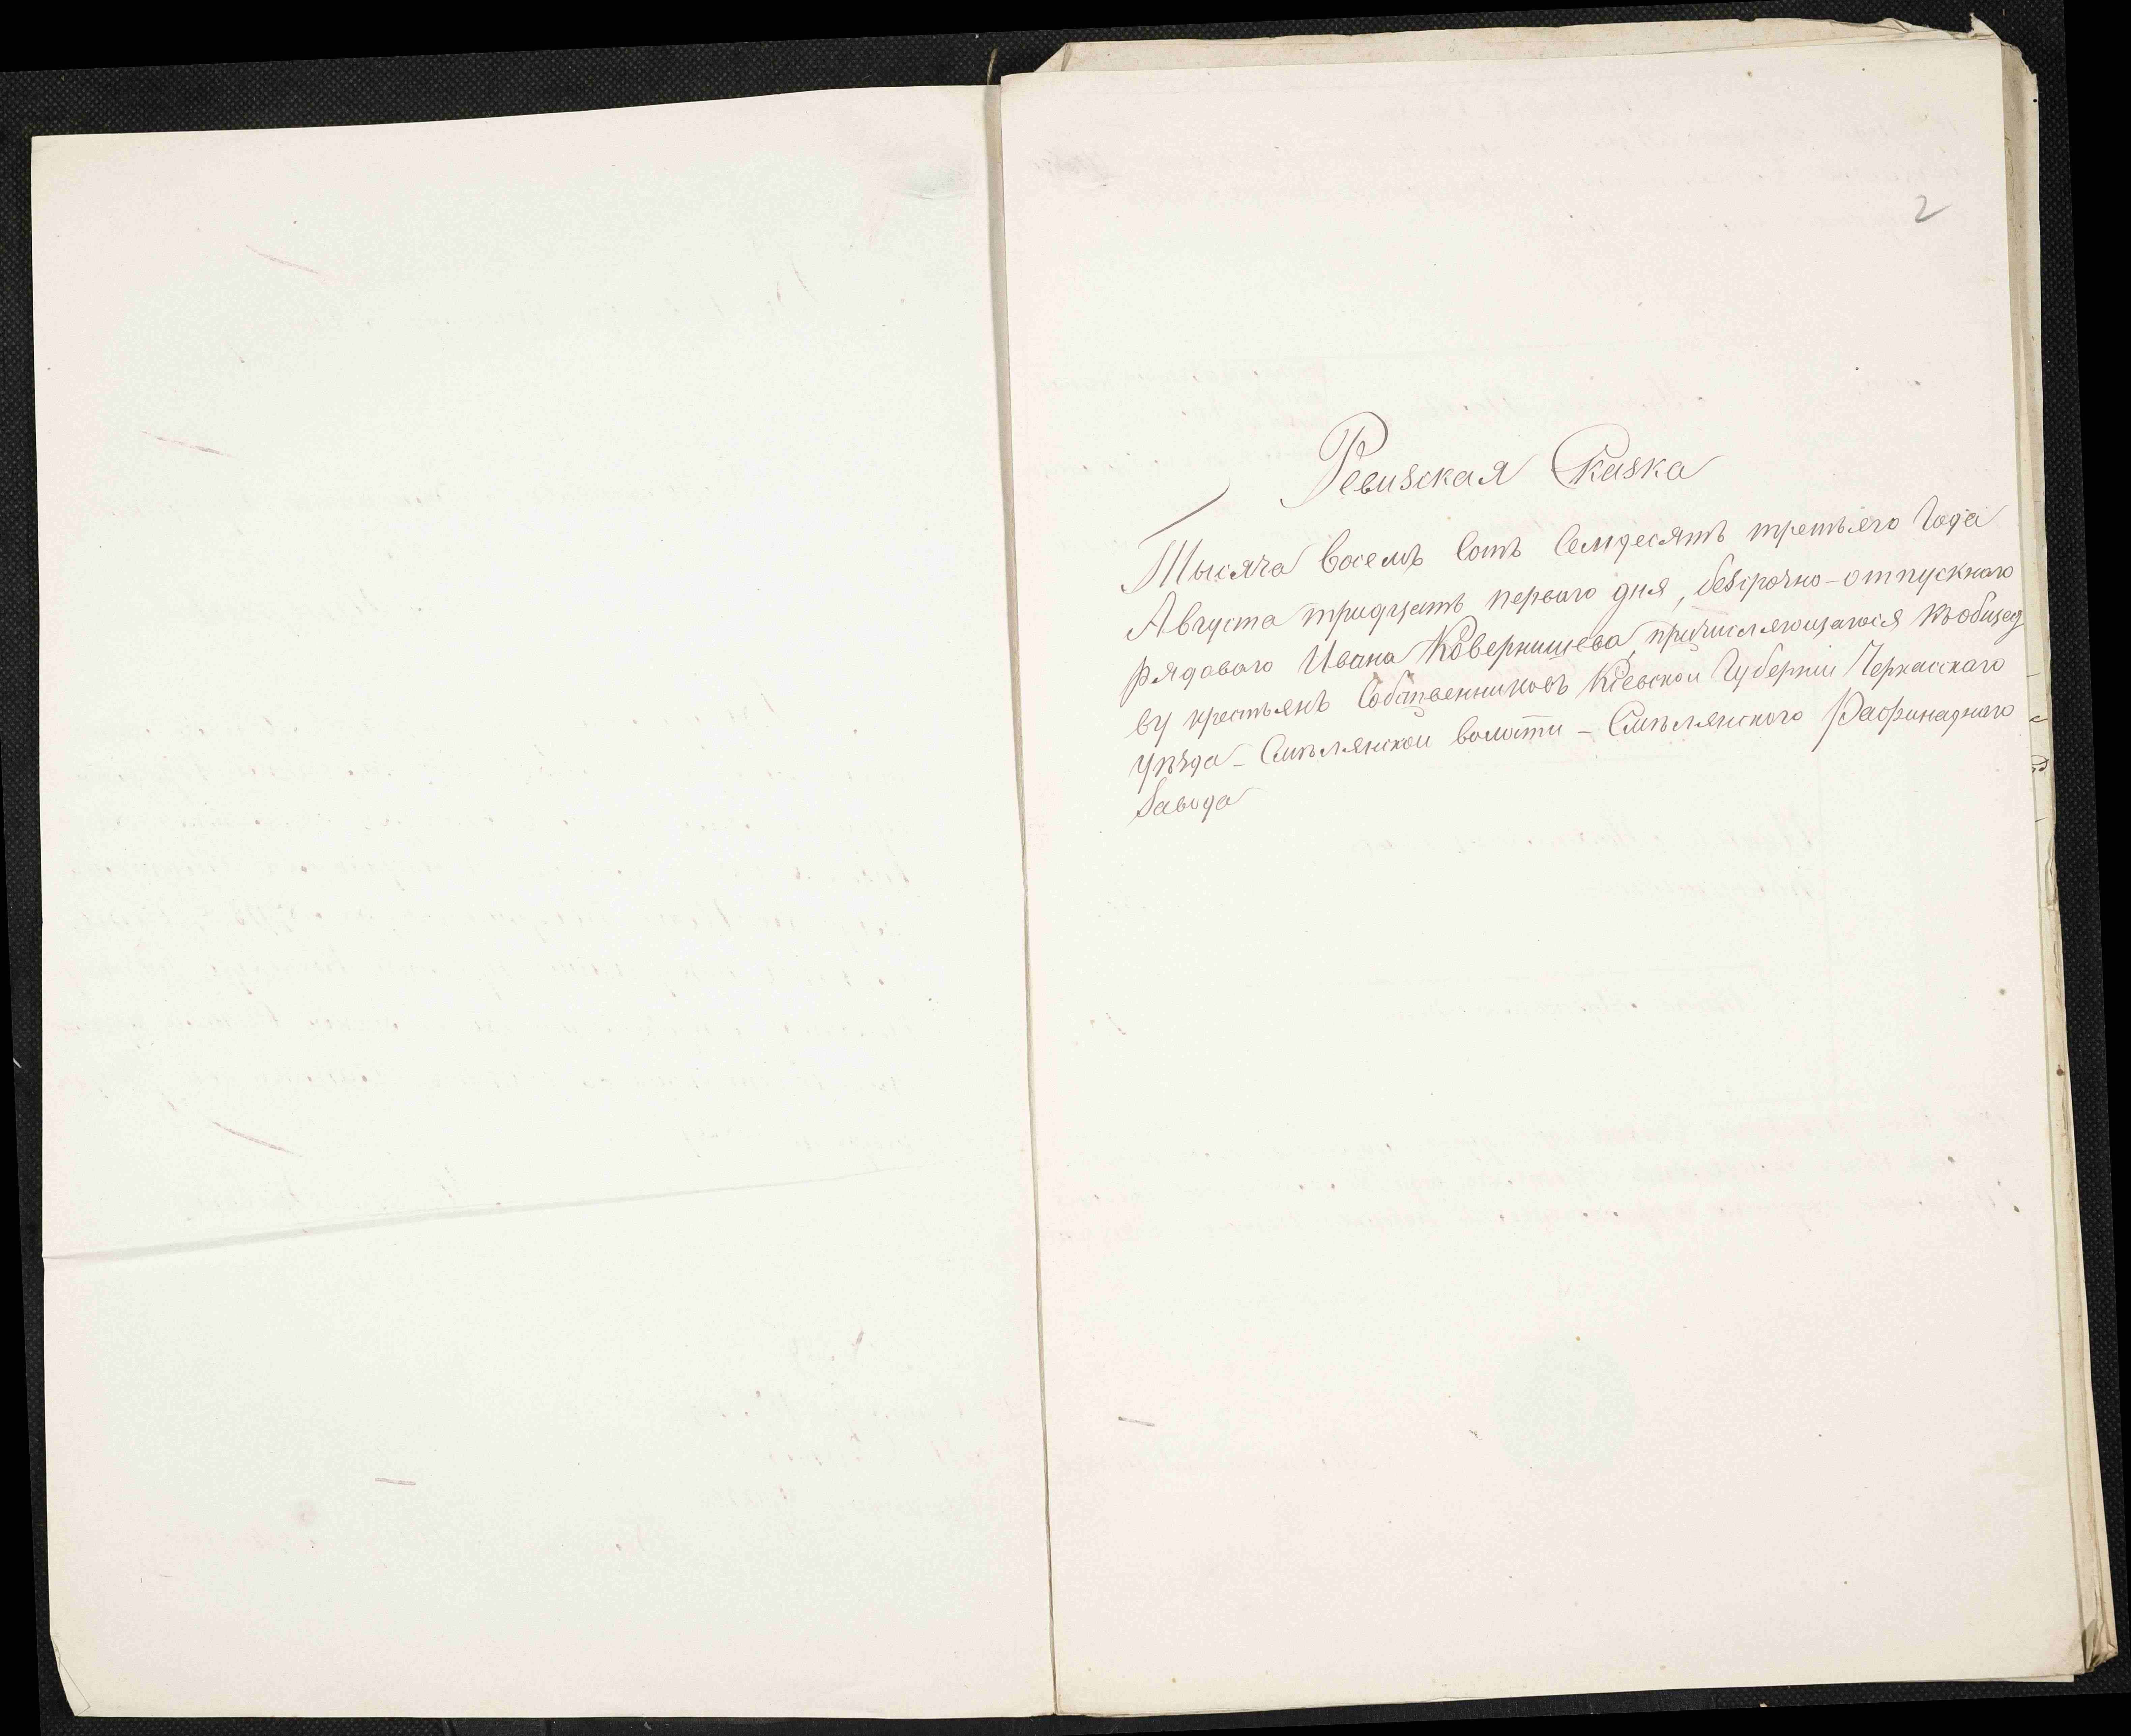 2
Ревизская Сказка
Тысяча восемь сотъ семдесятъ третьяго года
Августа тридцать перваго дня, безсрочно-отпускнаго
рядоваго Ивана Ковернищева, причисляющагося къ обществ
ву крестьянъ собственниковъ Кіевской Губерніи Черкасскаго
уѣзда - Смѣлянской волости - Смѣлянского Рафинаднаго
Завода